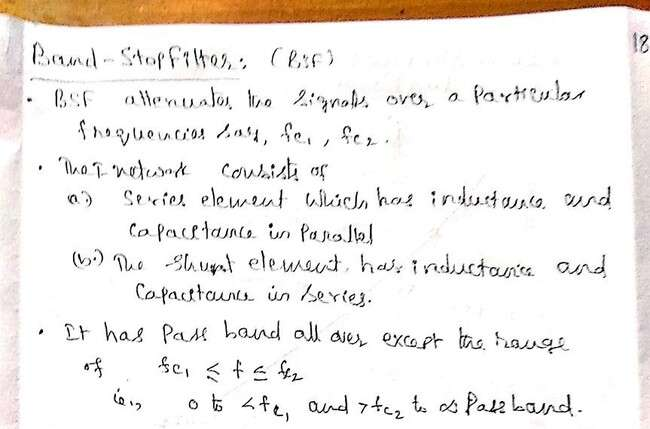 18
Band-Stop Filter: (BSF)
• BSF attenuates the signals over a particular
frequencies say, fc1, fc2.
• The T network consists of
a) Series element which has inductance and
capacitance in parallel
(b.) The shunt element has inductance and
capacitance in series.
• It has pass band all over except the range
of fc1 ≤ f ≤ fc2
i.e., 0 to <fc1 and >fc2 to ∞ pass band.